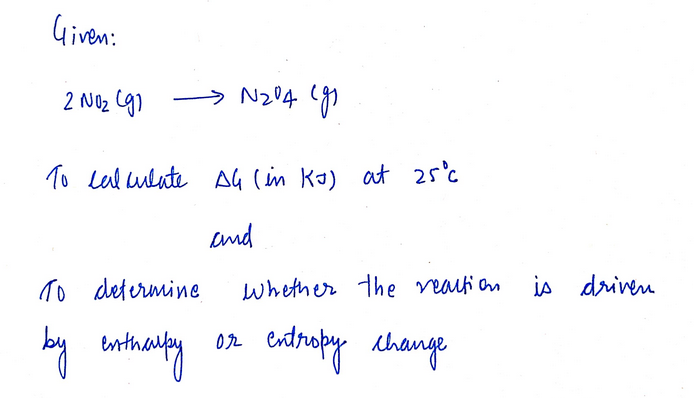 Given:
2 NO2 (g) ⟶ N2O4 (g)
To calculate ΔG (in KJ) at 25°C
and
To determine whether the reaction is driven
by enthalpy or entropy change